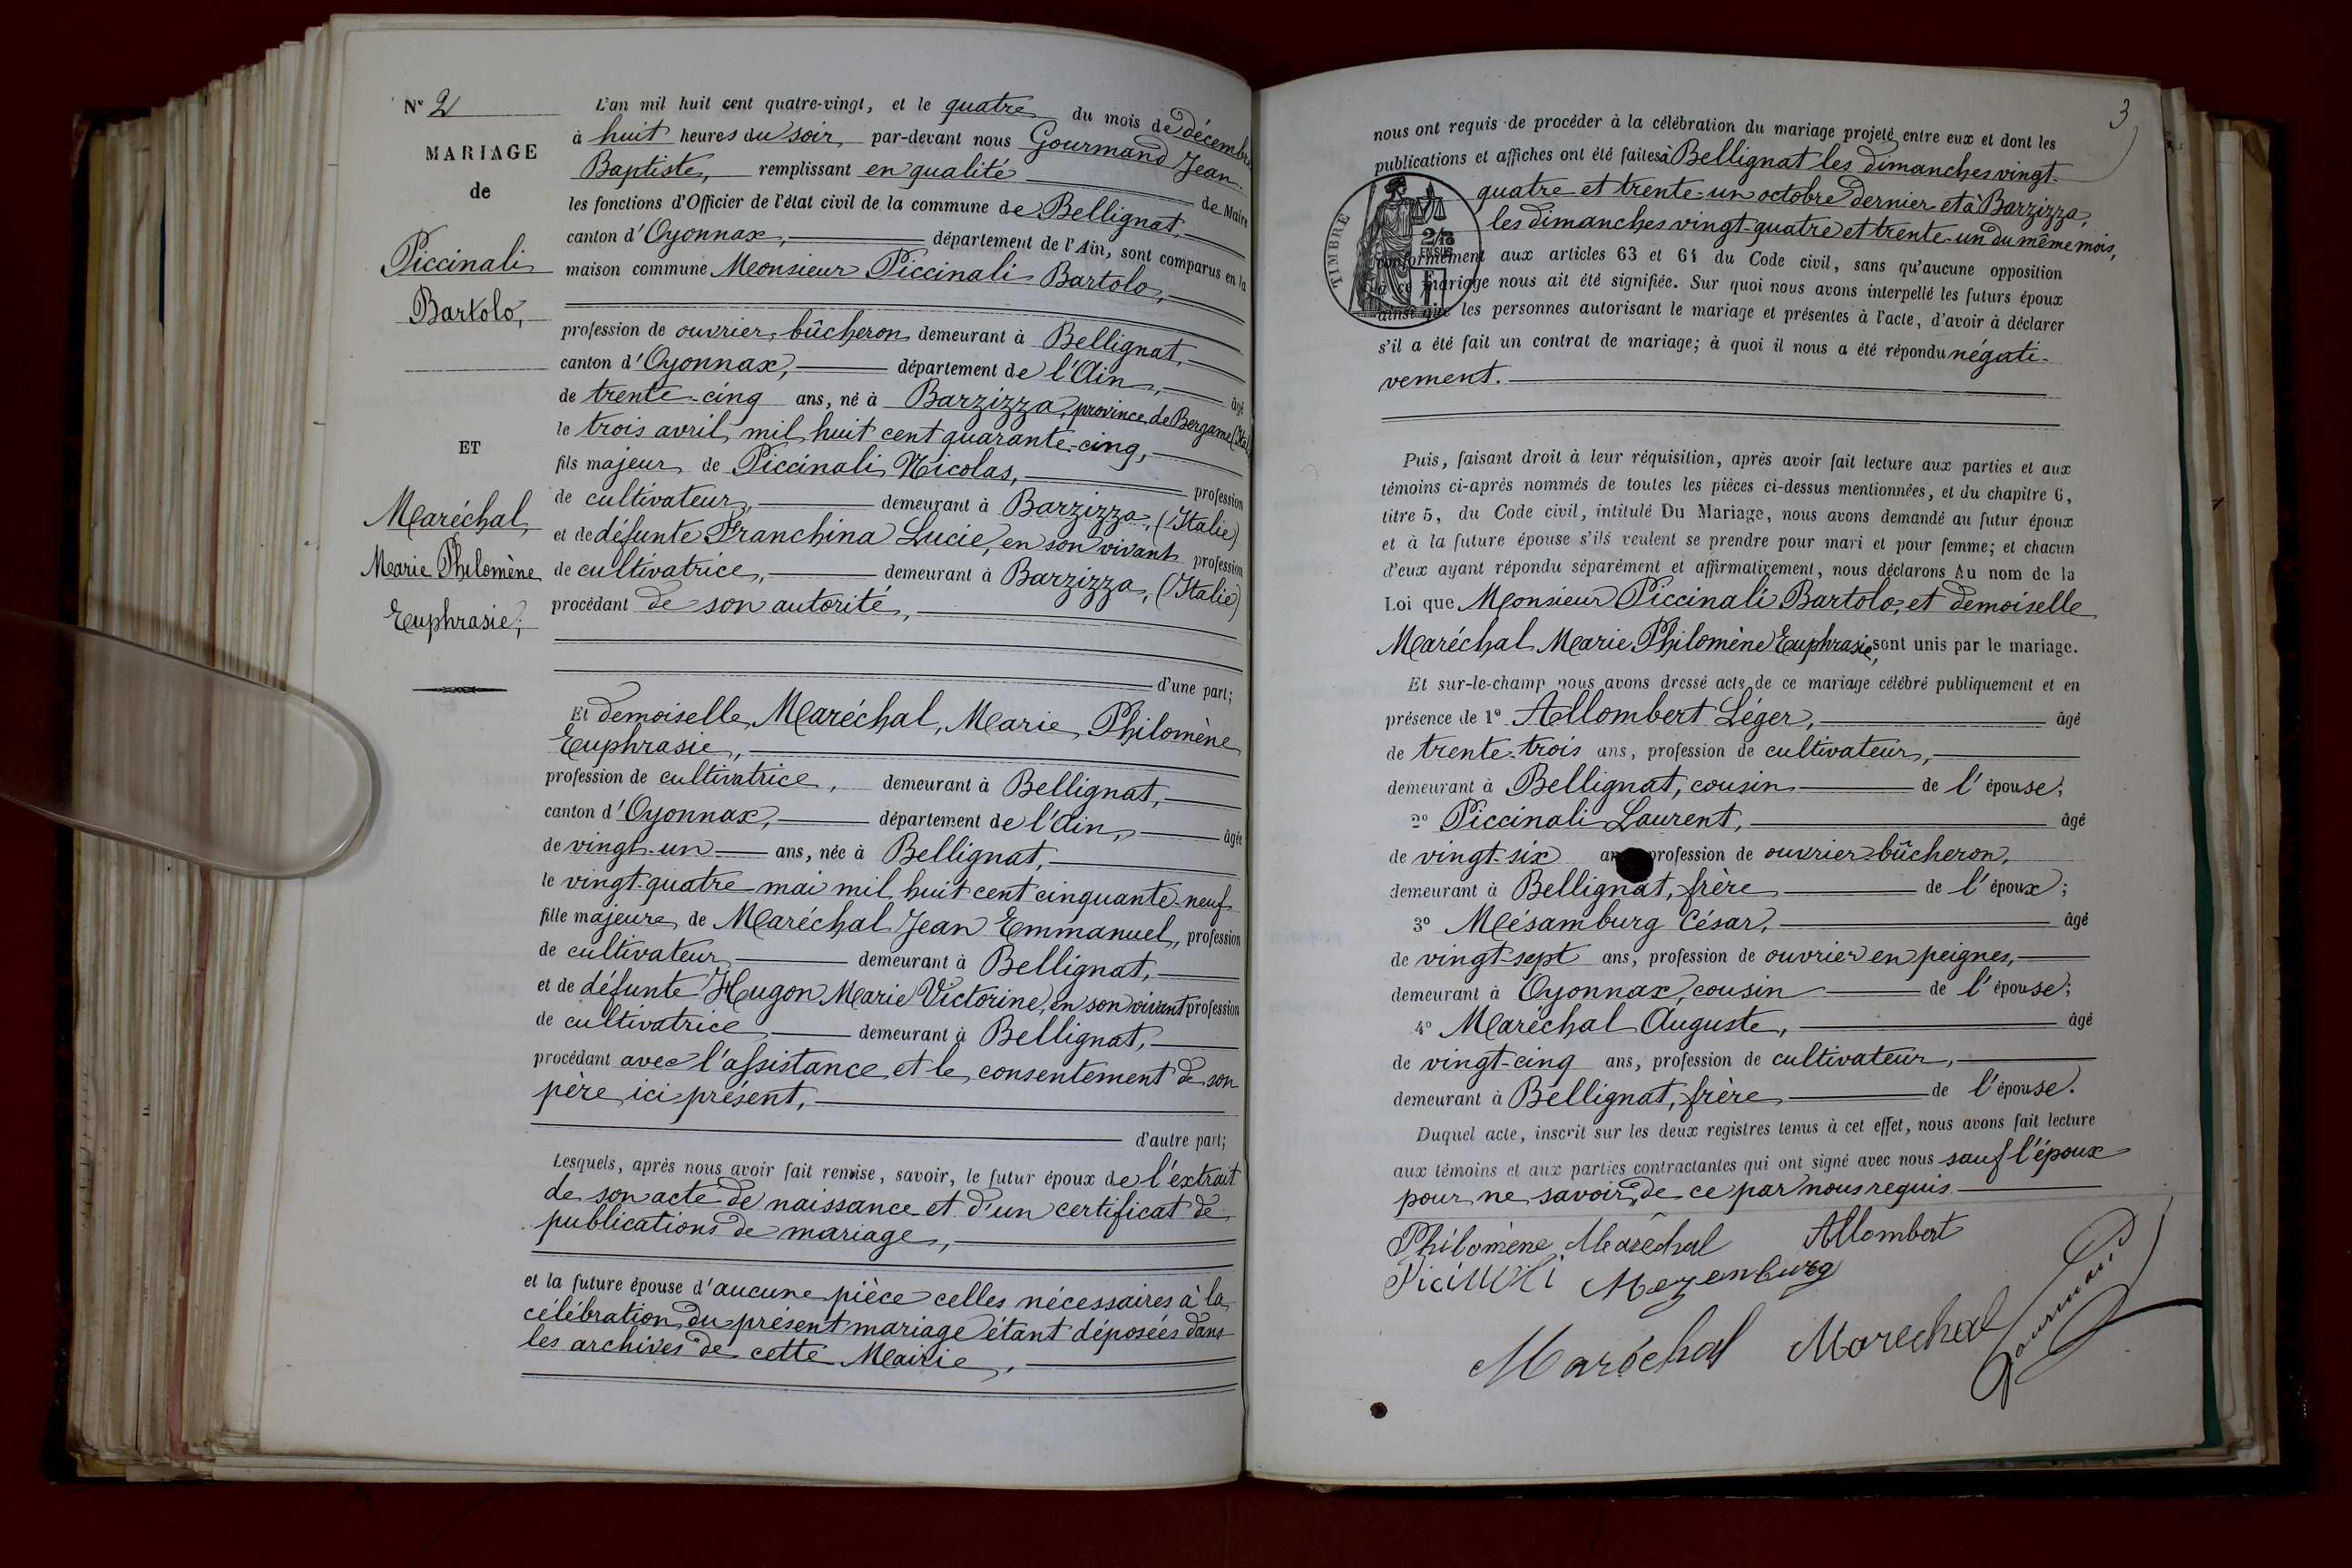 N° 2
MARIAGE
de
Piccinali
Bartolo,
ET
Maréchal,
Marie Philomène
Euphrasie;
L'an mil huit cent quatre-vingt, et le quatre du mois de décembre
à huit heures du soir, par-devant nous Gourmand Jean-
Baptiste, remplissant en qualité de Maire
les fonctions d'Officier de l'état civil de la commune de Bellignat,
canton d'Oyonnax, département de l'Ain, sont comparus en la
maison commune Monsieur Piccinali Bartolo,
profession de ouvrier bûcheron demeurant à Bellignat,
canton d'Oyonnax, département de l'Ain, âgé
de trente-cinq ans, né à Barzizza, province de Bergame (Ita
le trois avril mil huit cent quarante-cinq,
fils majeur de Piccinali Nicolas, profession
de cultivateur, demeurant à Barzizza, (Italie)
et de défunte Franchina Lucie, en son vivant profession
de cultivatrice, demeurant à Barzizza, (Italie)
procédant de son autorité,
d'une part;
Et demoiselle Maréchal, Marie Philomène
Euphrasie,
profession de cultivatrice, demeurant à Bellignat,
canton d'Oyonnax, département de l'Ain, âgée
de vingt-un ans, née à Bellignat,
le vingt-quatre mai mil huit cent cinquante-neuf
fille majeure de Maréchal Jean Emmanuel, profession
de cultivateur, demeurant à Bellignat,
et de défunte Hugon Marie Victorine, en son vivant profession
de cultivatrice, demeurant à Bellignat,
procédant avec l'assistance et le consentement de son
père ici présent,
d'autre part;
Lesquels, après nous avoir fait remise, savoir, le futur époux de l'extrait
de son acte de naissance et d'un certificat de
publications de mariage,
et la future épouse d'aucune pièce celles nécessaires à la
célébration du présent mariage étant déposées dans
les archives de cette Mairie,
3
nous ont requis de procéder à la célébration du mariage projeté entre eux et dont les
publications et affiches ont été faites à Bellignat les dimanches vingt-
quatre et trente-un octobre dernier et à Barzizza,
les dimanches vingt-quatre et trente-un du même mois,
TIMBRE
2/10
EN SUS
conformément aux articles 63 et 64 du Code civil, sans qu'aucune opposition
à ce mariage nous ait été signifiée. Sur quoi nous avons interpellé les futurs époux
ainsi que les personnes autorisant le mariage et présentes à l'acte, d'avoir à déclarer
s'il a été fait un contrat de mariage; à quoi il nous a été répondu négati-
vement.
Puis, faisant droit à leur réquisition, après avoir fait lecture aux parties et aux
témoins ci-après nommés de toutes les pièces ci-dessus mentionnées, et du chapitre 6,
titre 5, du Code civil, intitulé Du Mariage, nous avons demandé au futur époux
et à la future épouse s'ils veulent se prendre pour mari et pour femme; et chacun
d'eux ayant répondu séparément et affirmativement, nous déclarons Au nom de la
Loi que Monsieur Piccinali Bartolo, et demoiselle
Maréchal Marie Philomène Euphrasie, sont unis par le mariage.
Et sur-le-champ nous avons dressé acte de ce mariage célébré publiquement et en
présence de 1° Allombert Léger, âgé
de trente-trois ans, profession de cultivateur,
demeurant à Bellignat, cousin de l'épouse;
2° Piccinali Laurent, âgé
de vingt-six ans profession de ouvrier bûcheron,
demeurant à Bellignat, frère de l'époux;
3° Mésamburg César, âgé
de vingt-sept ans, profession de ouvrier en peignes,
demeurant à Oyonnax, cousin de l'épouse;
4° Maréchal Auguste, âgé
de vingt-cinq ans, profession de cultivateur,
demeurant à Bellignat, frère de l'épouse.
Duquel acte, inscrit sur les deux registres tenus à cet effet, nous avons fait lecture
aux témoins et aux parties contractantes qui ont signé avec nous sauf l'époux
pour ne savoir, de ce par nous requis
Philomène Maréchal Allombert
Mezenburg
Maréchal Marechal Gourmand